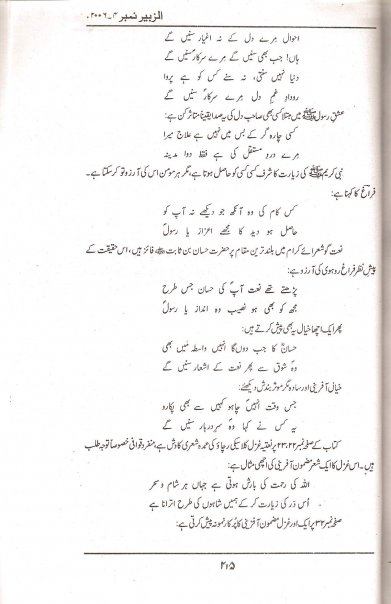 الزبیر نمبر ۴۔۲۰۰۶ء
احوال مرے دل کے نہ اغیار سنیں گے
ہاں! جب بھی سنیں گے مرے سرکارؐ سنیں گے
دنیا نہیں سنتی، نہ سنے کس کو ہے پروا
رودادِ غمِ دل مرے سرکارؐ سنیں گے
عشقِ رسولﷺ میں مبتلا کسی بھی صاحب دل کی یہ صدا یقیناً متاثر کن ہے:
کسی چارہ گر کے بس میں نہیں ہے علاج میرا
مرے دردِ مستقل کی ہے فقط دوا مدینہ
نبی کریمﷺ کی زیارت کا شرف کسی کسی کو حاصل ہوتا ہے، مگر ہر مومن اس کی آرزو تو کر سکتا ہے۔
فراغؔ کا کہنا ہے:
کس کام کی وہ آنکھ جو دیکھے نہ آپ کو
حاصل ہو دید کا مجھے اعزاز یا رسولؐ
نعت گو شعرائے کرام میں بلند ترین مقام پر حضرت حسان بن ثابتؓ فائز ہیں، اس حقیقت کے
پیش نظر فراغؔ روہوی کی آرزو ہے:
پڑھتے تھے نعت آپؐ کی حسان جس طرح
مجھ کو بھی ہو نصیب وہ انداز یا رسولؐ
پھر ایک اچھا خیال یہ بھی پیش کرتے ہیں:
حسانؓ کا جب دوں گا انہیں واسطہ میں بھی
وہ شوق سے پھر نعت کے اشعار سنیں گے
خیال آفرینی اور سادہ مگر موثر بندش دیکھئے:
جس وقت انہیں چاہو کہیں سے بھی پکارو
یہ کس نے کہا وہ سرِ دربار سنیں گے
کتاب کے صفحہ نمبر ۲۲،۲۳ پر نعتیہ غزل کلاسیکی رچاؤ کی عمدہ شعری کاوش ہے منفرد قوافی خصوصاً توجہ طلب
ہیں۔ اس غزل کا ایک شعر مضمون آفرینی کی اچھی مثال ہے:
اللہ کی رحمت کی بارش ہوتی ہے جہاں ہر شام و سحر
اُس در کی زیارت کر کے ہمیں شاہوں کی طرح اترانا ہے
صفحہ نمبر ۳۲ پر ایک اور غزل مضمون آفرینی کا پرکار نمونہ پیش کرتی ہے:
۲۱۵